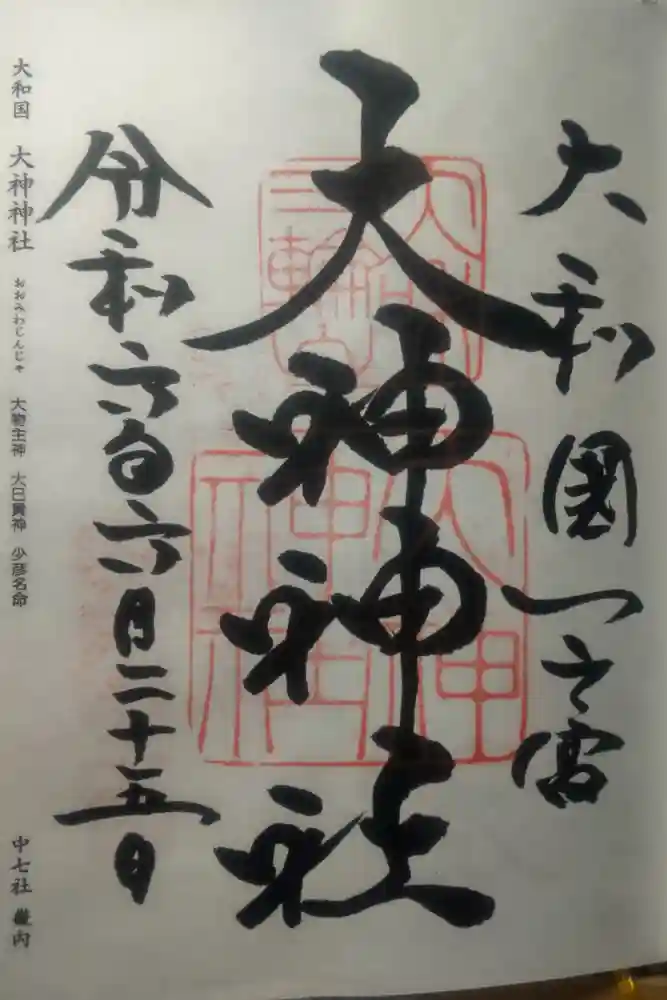 大和國一之宮
大神神社
大神神社
令和六年六月二十五日
大和国 大神神社 おおみわじんじゃ 大物主神 大己貴神 少彦名命 中七社 畿内